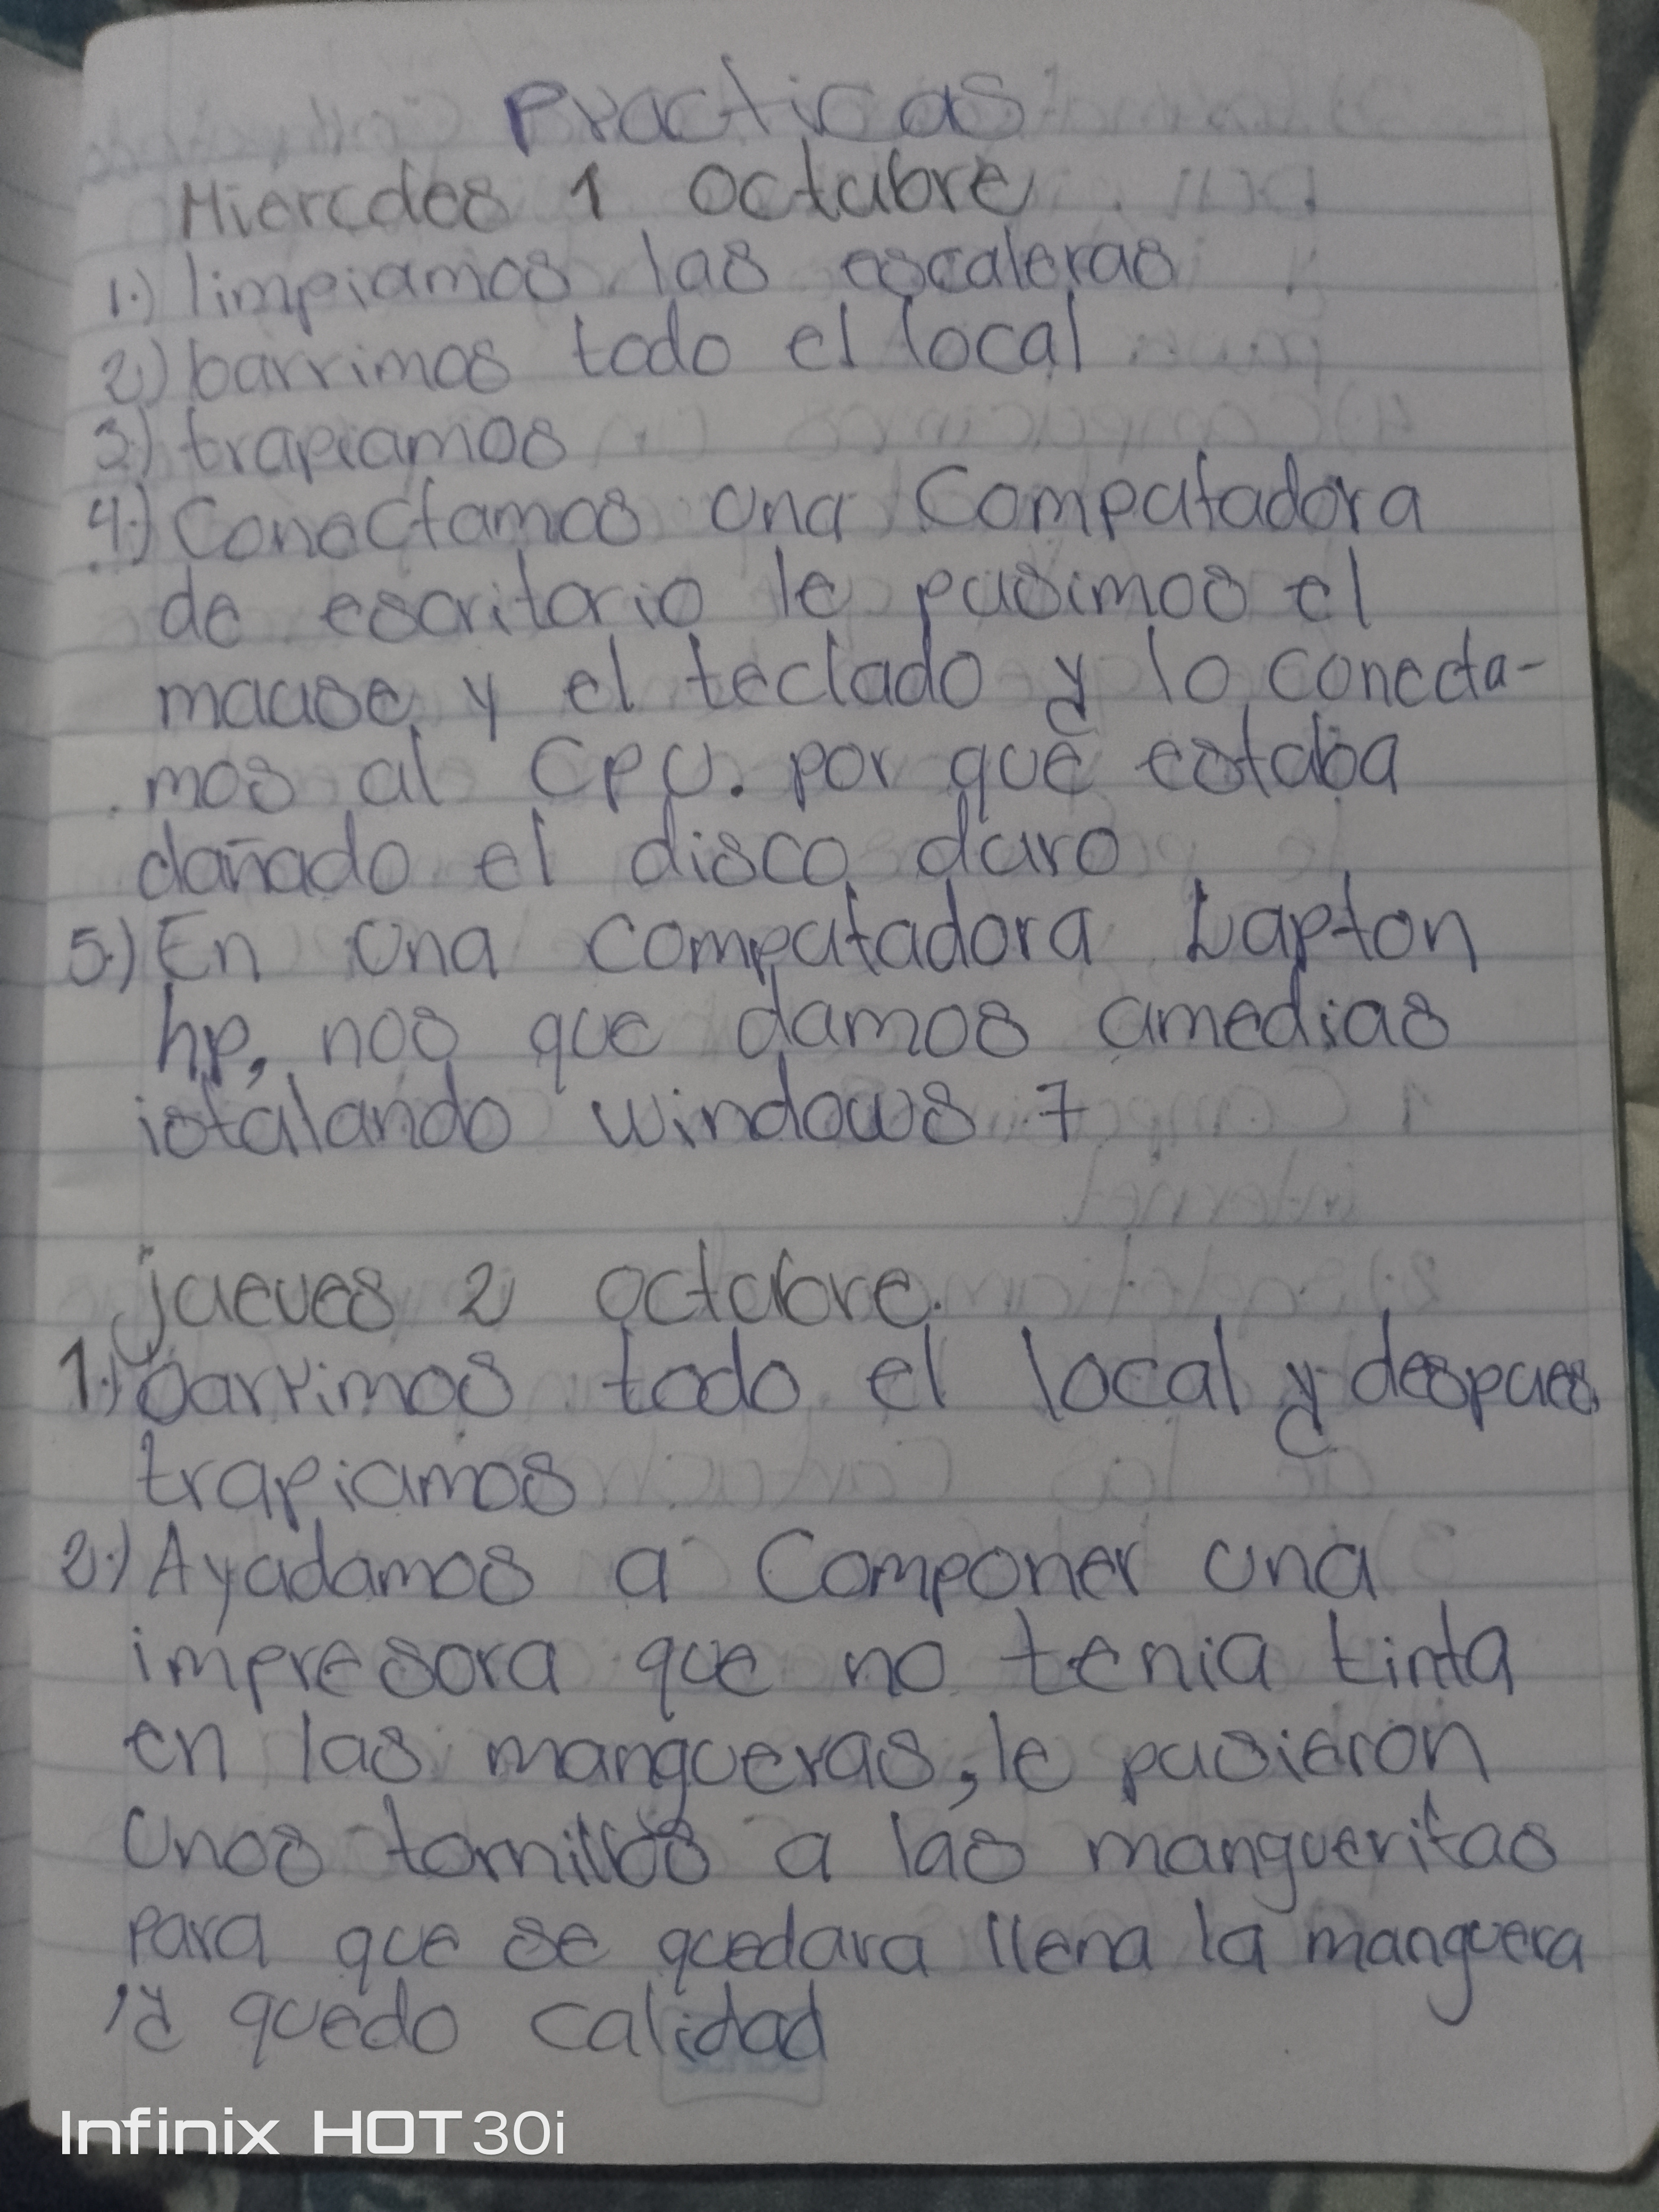 Practicas
Miercoles 1 octubre
1.) limpiamos las escaleras
2.) barrimos todo el local
3.) trapiamos
4.) Conectamos una Computadora
de escritorio le pusimos el
mause y el teclado y lo conecta-
mos al CPU. por que estaba
dañado el disco duro
5.) En una computadora Lapton
hp, nos que damos amedias
istalando windows 7
jueves 2 octubre.
1.) barrimos todo el local y despues
trapiamos
2.) Ayudamos a Componer una
impresora que no tenia tinta
en las mangueras, le pusieron
unos tornillos a las mangueritas
para que se quedara llena la manguera
, y quedo calidad
Infinix HOT 30i